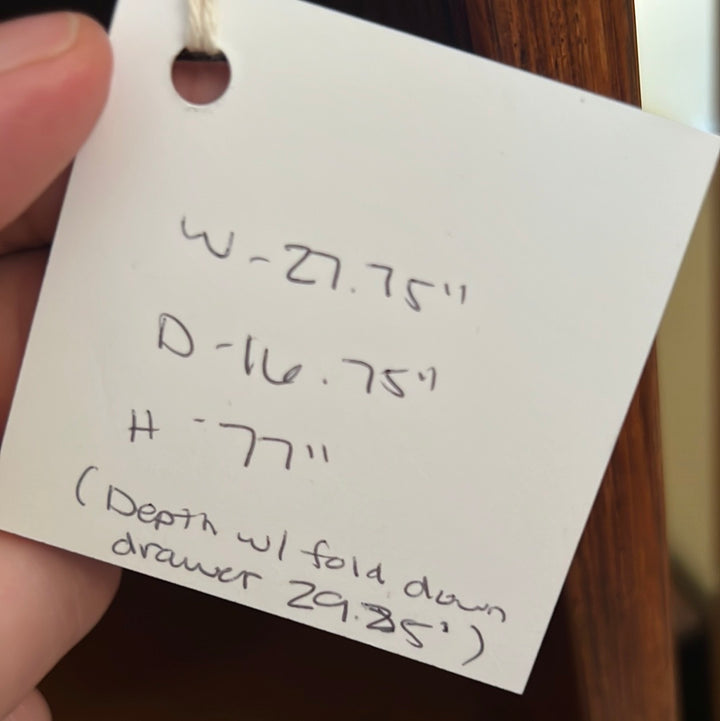 W - 27.75"
D - 16.75"
H - 77"
(Depth w/ fold down
drawer 29.25")